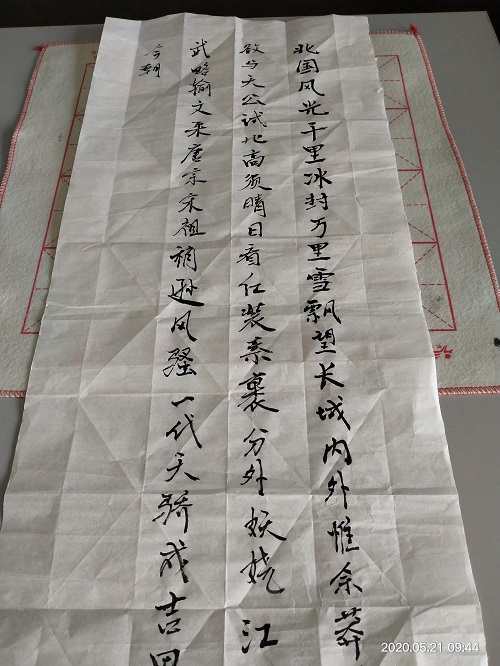 北国风光千里冰封万里雪飘望长城内外惟余莽
欲与天公试比高须晴日看红装素裹分外妖娆江
武略输文采唐宗宋祖稍逊风骚一代天骄成吉
今朝
2020.05.21 09:44